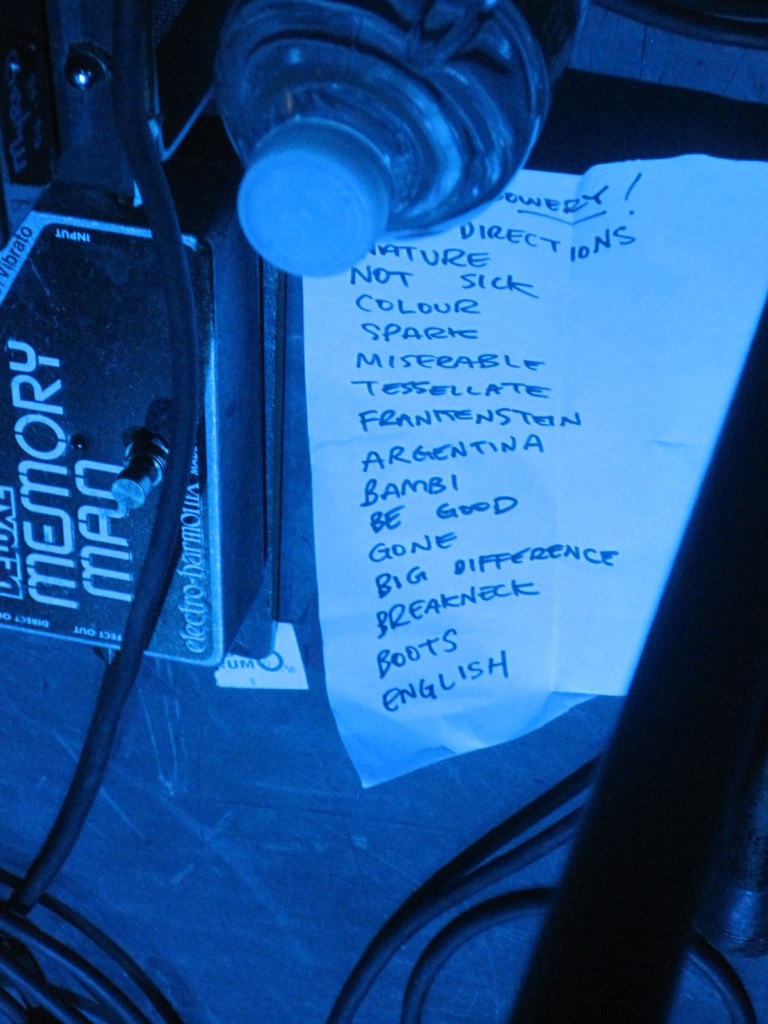 OWERY!
DIRECTIONS
NATURE
NOT SICK
COLOUR
SPARK
MISERABLE
TESSELLATE
FRANKENSTEIN
ARGENTINA
BAMBI
BE GOOD
GONE
BIG DIFFERENCE
BREAKNECK
BOOTS
ENGLISH
Vibrato
INPUT
DELUXE
MEMORY
MAN
electro-harmonix
DIRECT OU
FECT OUT
UM